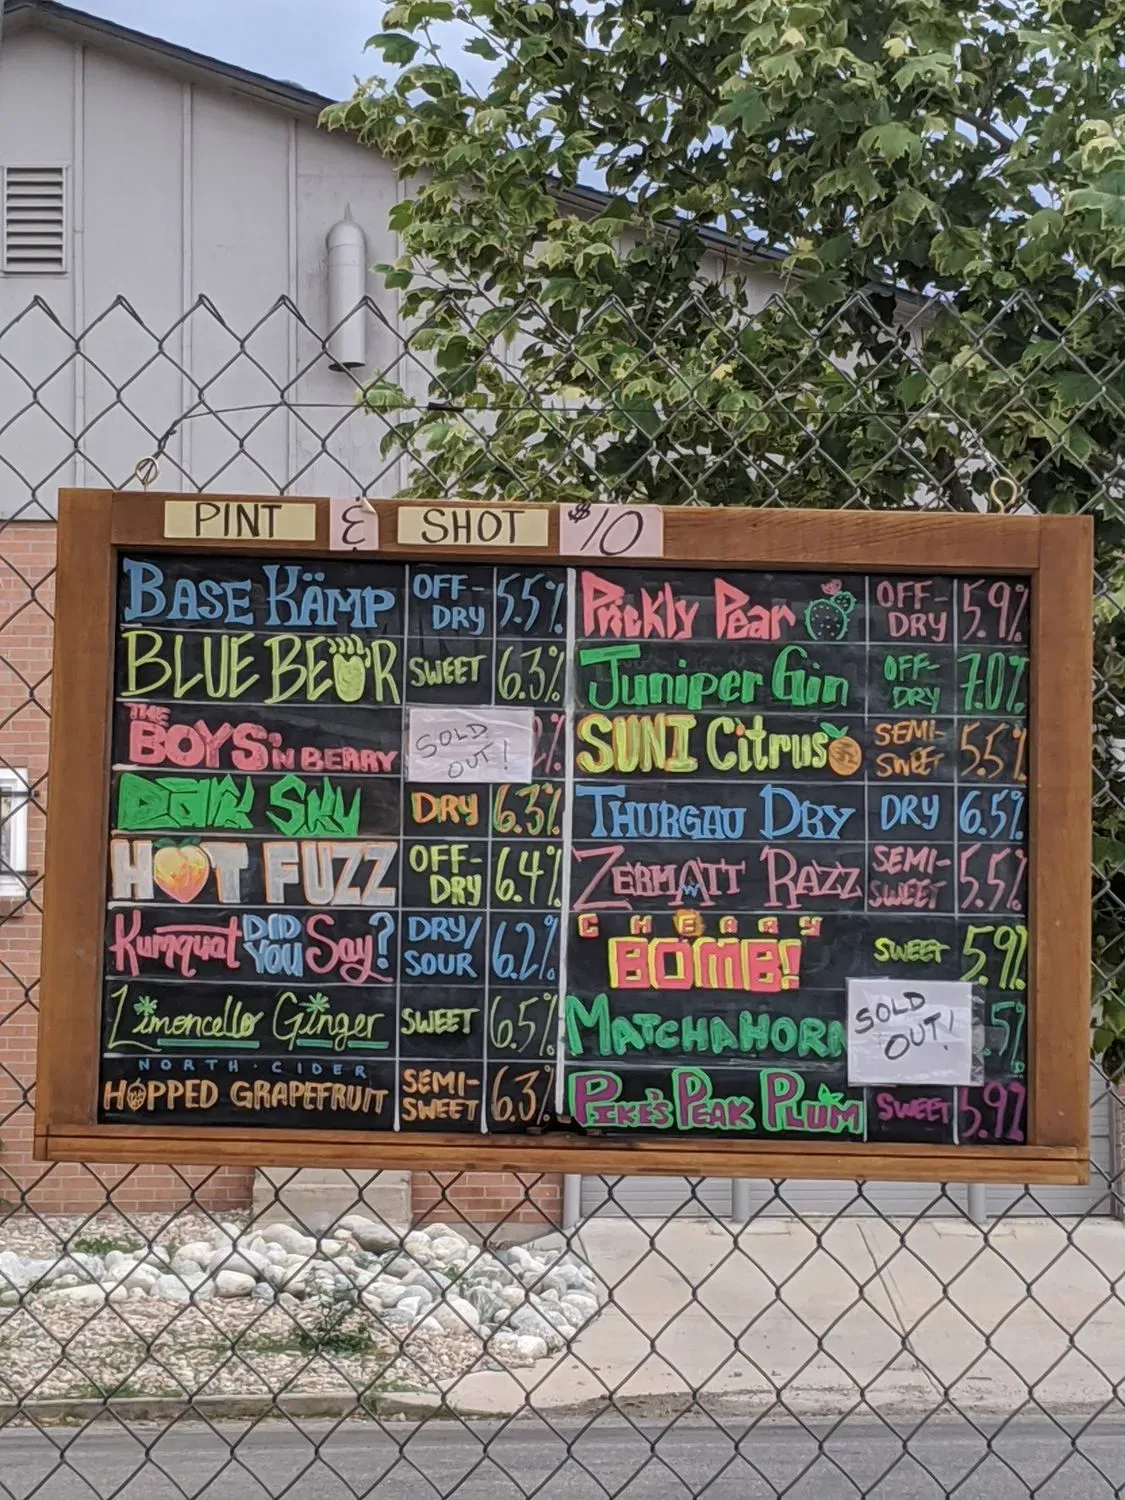 PINT & SHOT $10
BASE KÄMP OFF-DRY 5.5%
BLUE BEAR SWEET 6.3%
THE BOYS'N BERRY SOLD OUT! %
DARK SKY DRY 6.3%
HOT FUZZ OFF-DRY 6.4%
Kumquat DID YOU Say? DRY/SOUR 6.2%
Limoncello Ginger SWEET 6.5%
NORTH · CIDER
HOPPED GRAPEFRUIT SEMI-SWEET 6.3%
Prickly Pear OFF-DRY 5.9%
Juniper Gin OFF-DRY 7.0%
SUNI Citrus SEMI-SWEET 5.5%
THURGAU DRY DRY 6.5%
ZERMATT RAZZ SEMI-SWEET 5.5%
CHERRY
BOMB! SWEET 5.9%
MATCHAHORN SOLD OUT! .5%
PIKE'S PEAK PLUM SWEET 5.9%